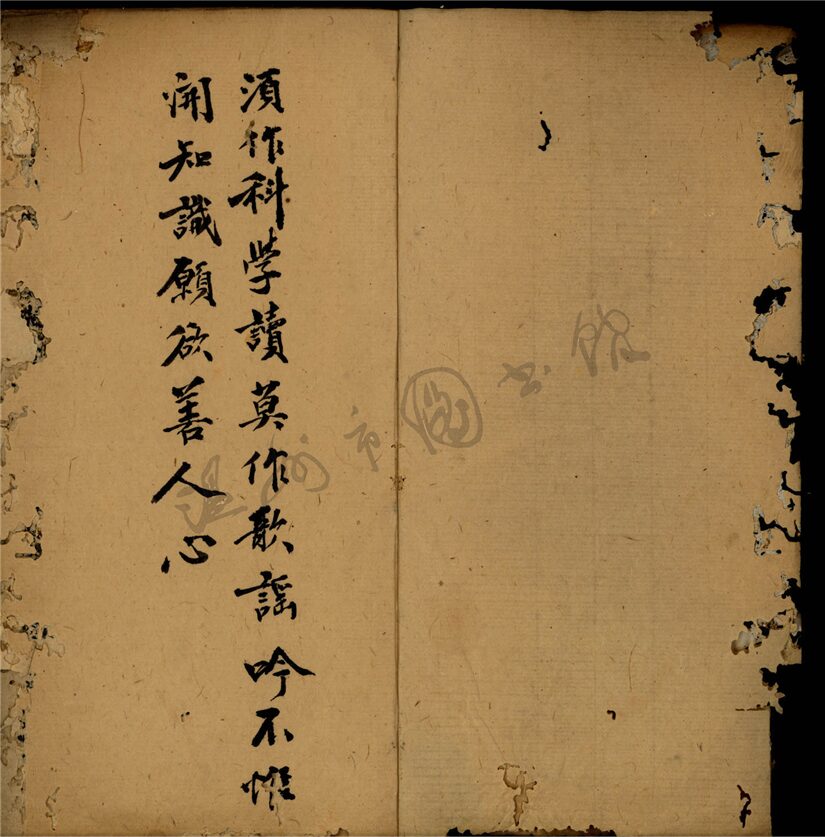 須作科學讀莫作歌謠吟不惟
開知識願欲善人心
温州市圖书館